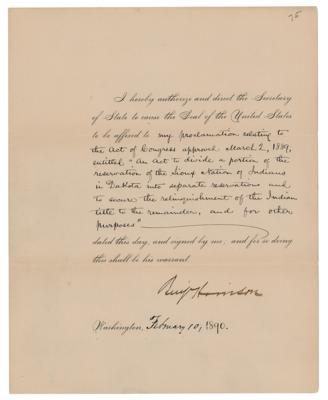 75
I hereby authorize and direct the Secretary
of State to cause the Seal of the United States
to be affixed to my proclamation relating to
the Act of Congress approved March 2, 1889,
entitled "An Act to divide a portion of the
reservation of the Sioux Nation of Indians
in Dakota into separate reservations and
to secure the relinquishment of the Indian
title to the remainder, and for other
purposes"
dated this day, and signed by me; and for so doing
this shall be his warrant.
Benj Harrison
Washington, February 10, 1890.